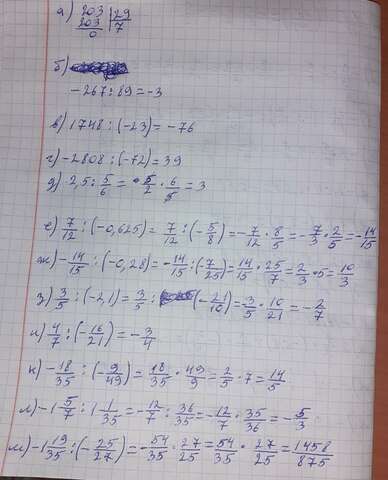 а) 203 | 29
203 | 7
0
б)
-267 : 89 = -3
в) 1748 : (-23) = -76
г) -2808 : (-72) = 39
д) 2,5 : 5/6 = 5/2 · 6/5 = 3
е) 7/12 : (-0,625) = 7/12 : (-5/8) = -7/12 · 8/5 = -7/3 · 2/5 = -14/15
ж) -14/15 : (-0,28) = -14/15 : (-7/25) = 14/15 · 25/7 = 2/3 · 5 = 10/3
з) 3/5 : (-2,1) = 3/5 : (-21/10) = -3/5 · 10/21 = -2/7
и) 4/7 : (-16/21) = -3/4
к) -18/35 : (-9/49) = 18/35 · 49/9 = 2/5 · 7 = 14/5
л) -1 5/7 : 1 1/35 = -12/7 : 36/35 = -12/7 · 35/36 = -5/3
м) -1 19/35 : (-25/27) = -54/35 · 27/25 = 54/35 · 27/25 = 1458/875